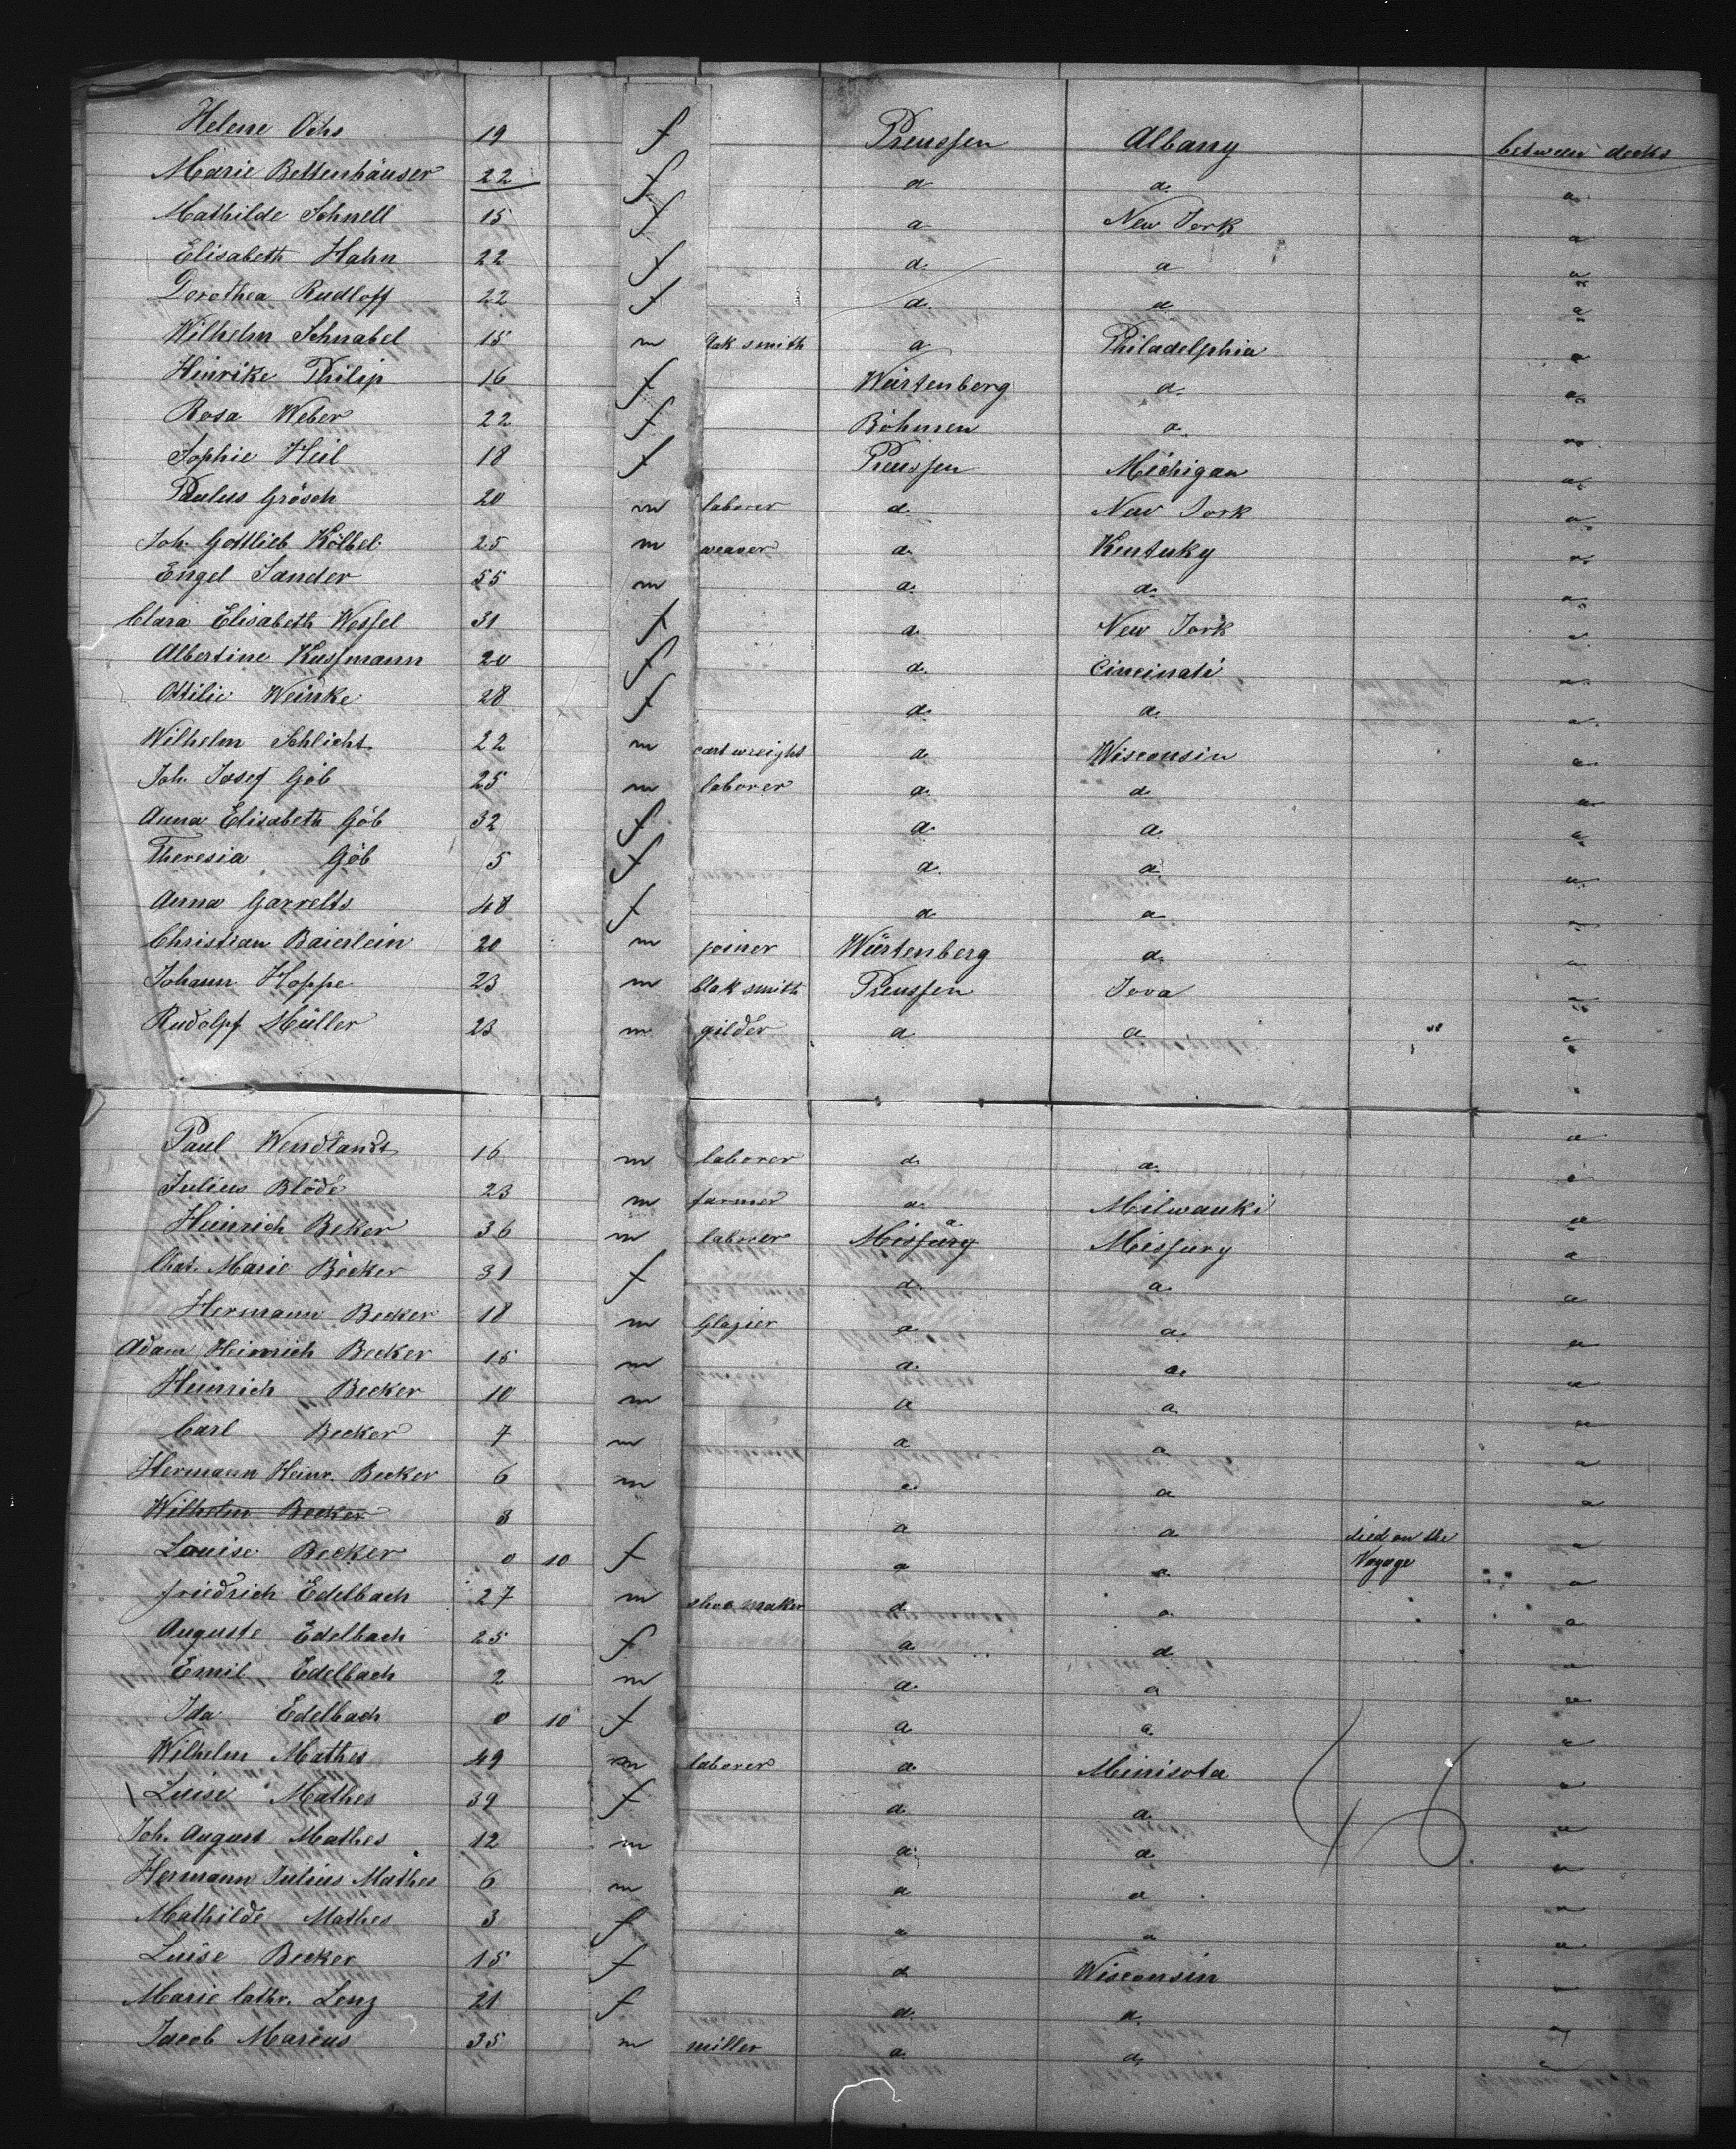 Helene Ochs 19 f Preussen Albany between decks
Marie Bettenhäuser 22 f d d. a.
Mathilde Schnell 15 f a New York a
Elisabeth Hahn 22 f d. a a
Dorothea Rudloff 22 f d. d a
Wilhelm Schnabel 15 m smith a Philadelphia a
Hinrike Philip 16 f Würtenberg d. a
Rosa Weber 22 f Böhmen a. a
Sophie Heil 18 f Preussen Michigan a
Paulus Grösch 20 m laborer d New York a
Joh. Gottlieb Kölbel 25 m weaver a. Kentuky a
Engel Sander 55 m a. a. a
Clara Elisabeth Wessel 31 f a New York a
Albertine Kussmann 20 f d. Cincinati a
Ottilie Weinke 28 f a. a. a
Wilhelm Schlicht 22 m cart wreight a Wisconsin a
Joh. Josef Göb 25 m laborer a. d a
Anna Elisabeth Göb 32 f a. a. a
Theresia Göb 5 f a. a. a
Anna Garrelts 48 f d a a
Christian Baierlein 20 m joiner Würtenberg d. a
Johann Hoppe 23 m blak smith Preussen Iova a
Rudolpf Müller 23 m gilder a a a
Paul Wendlandt 16 m laborer d. a. a
Julius Blöde 23 m farmer a. Milwauki a
Heinrich Beker 36 m laborer Missury a Missury a
Chat. Marie Becker 31 f d. a. a
Hermann Becker 18 m Glazier a a. a
Adam Heinrich Becker 15 m a. a. a
Heinrich Becker 10 m a a a
Carl Becker 7 m a a a
Hermann Heinr. Becker 6 m a. a a
Wilhelm Becker 3 a a died on the a
Louise Becker 0 10 f a a Voyage a
Friedrich Edelbach 27 m shoe maker d. a. a
Auguste Edelbach 25 f a d. a
Emil Edelbach 2 m a. a a
Ida Edelbach 0 10 f a a. a
Wilhelm Mathes 49 m laborer a Minisota a
Luise Mathes 39 f d a. a
Joh. August Mathes 12 m a. a a
Hermann Julius Mathes 6 m a a a
Mathilde Mathes 3 f a a a
Luise Becker 15 f d Wisconsin a
Marie Cathr. Lenz 21 f d. a. a
Jacob Marius 35 m miller a. a. a